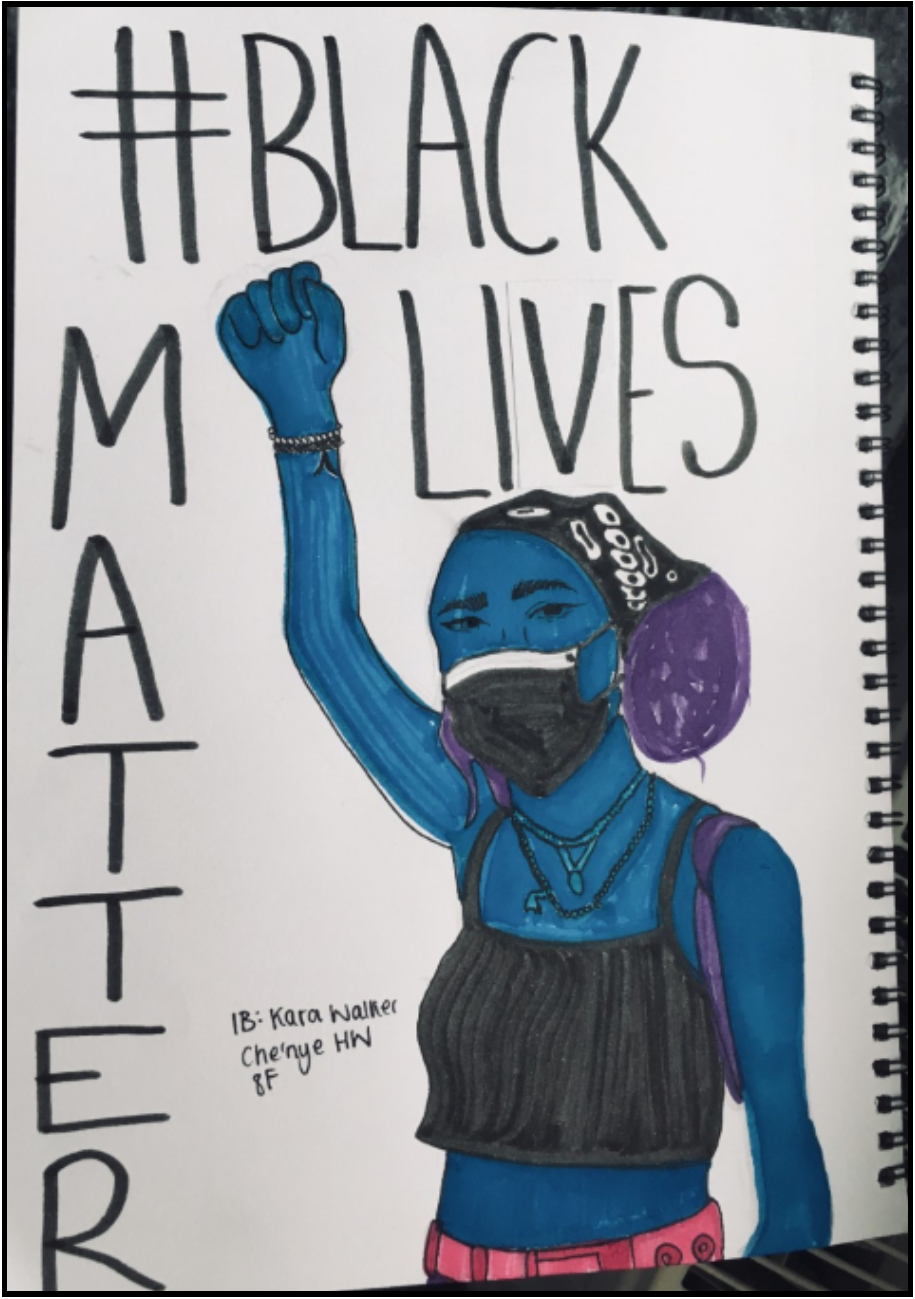 #BLACK
LIVES
MATTER
IB: Kara Walker
Che'nye HW
8F